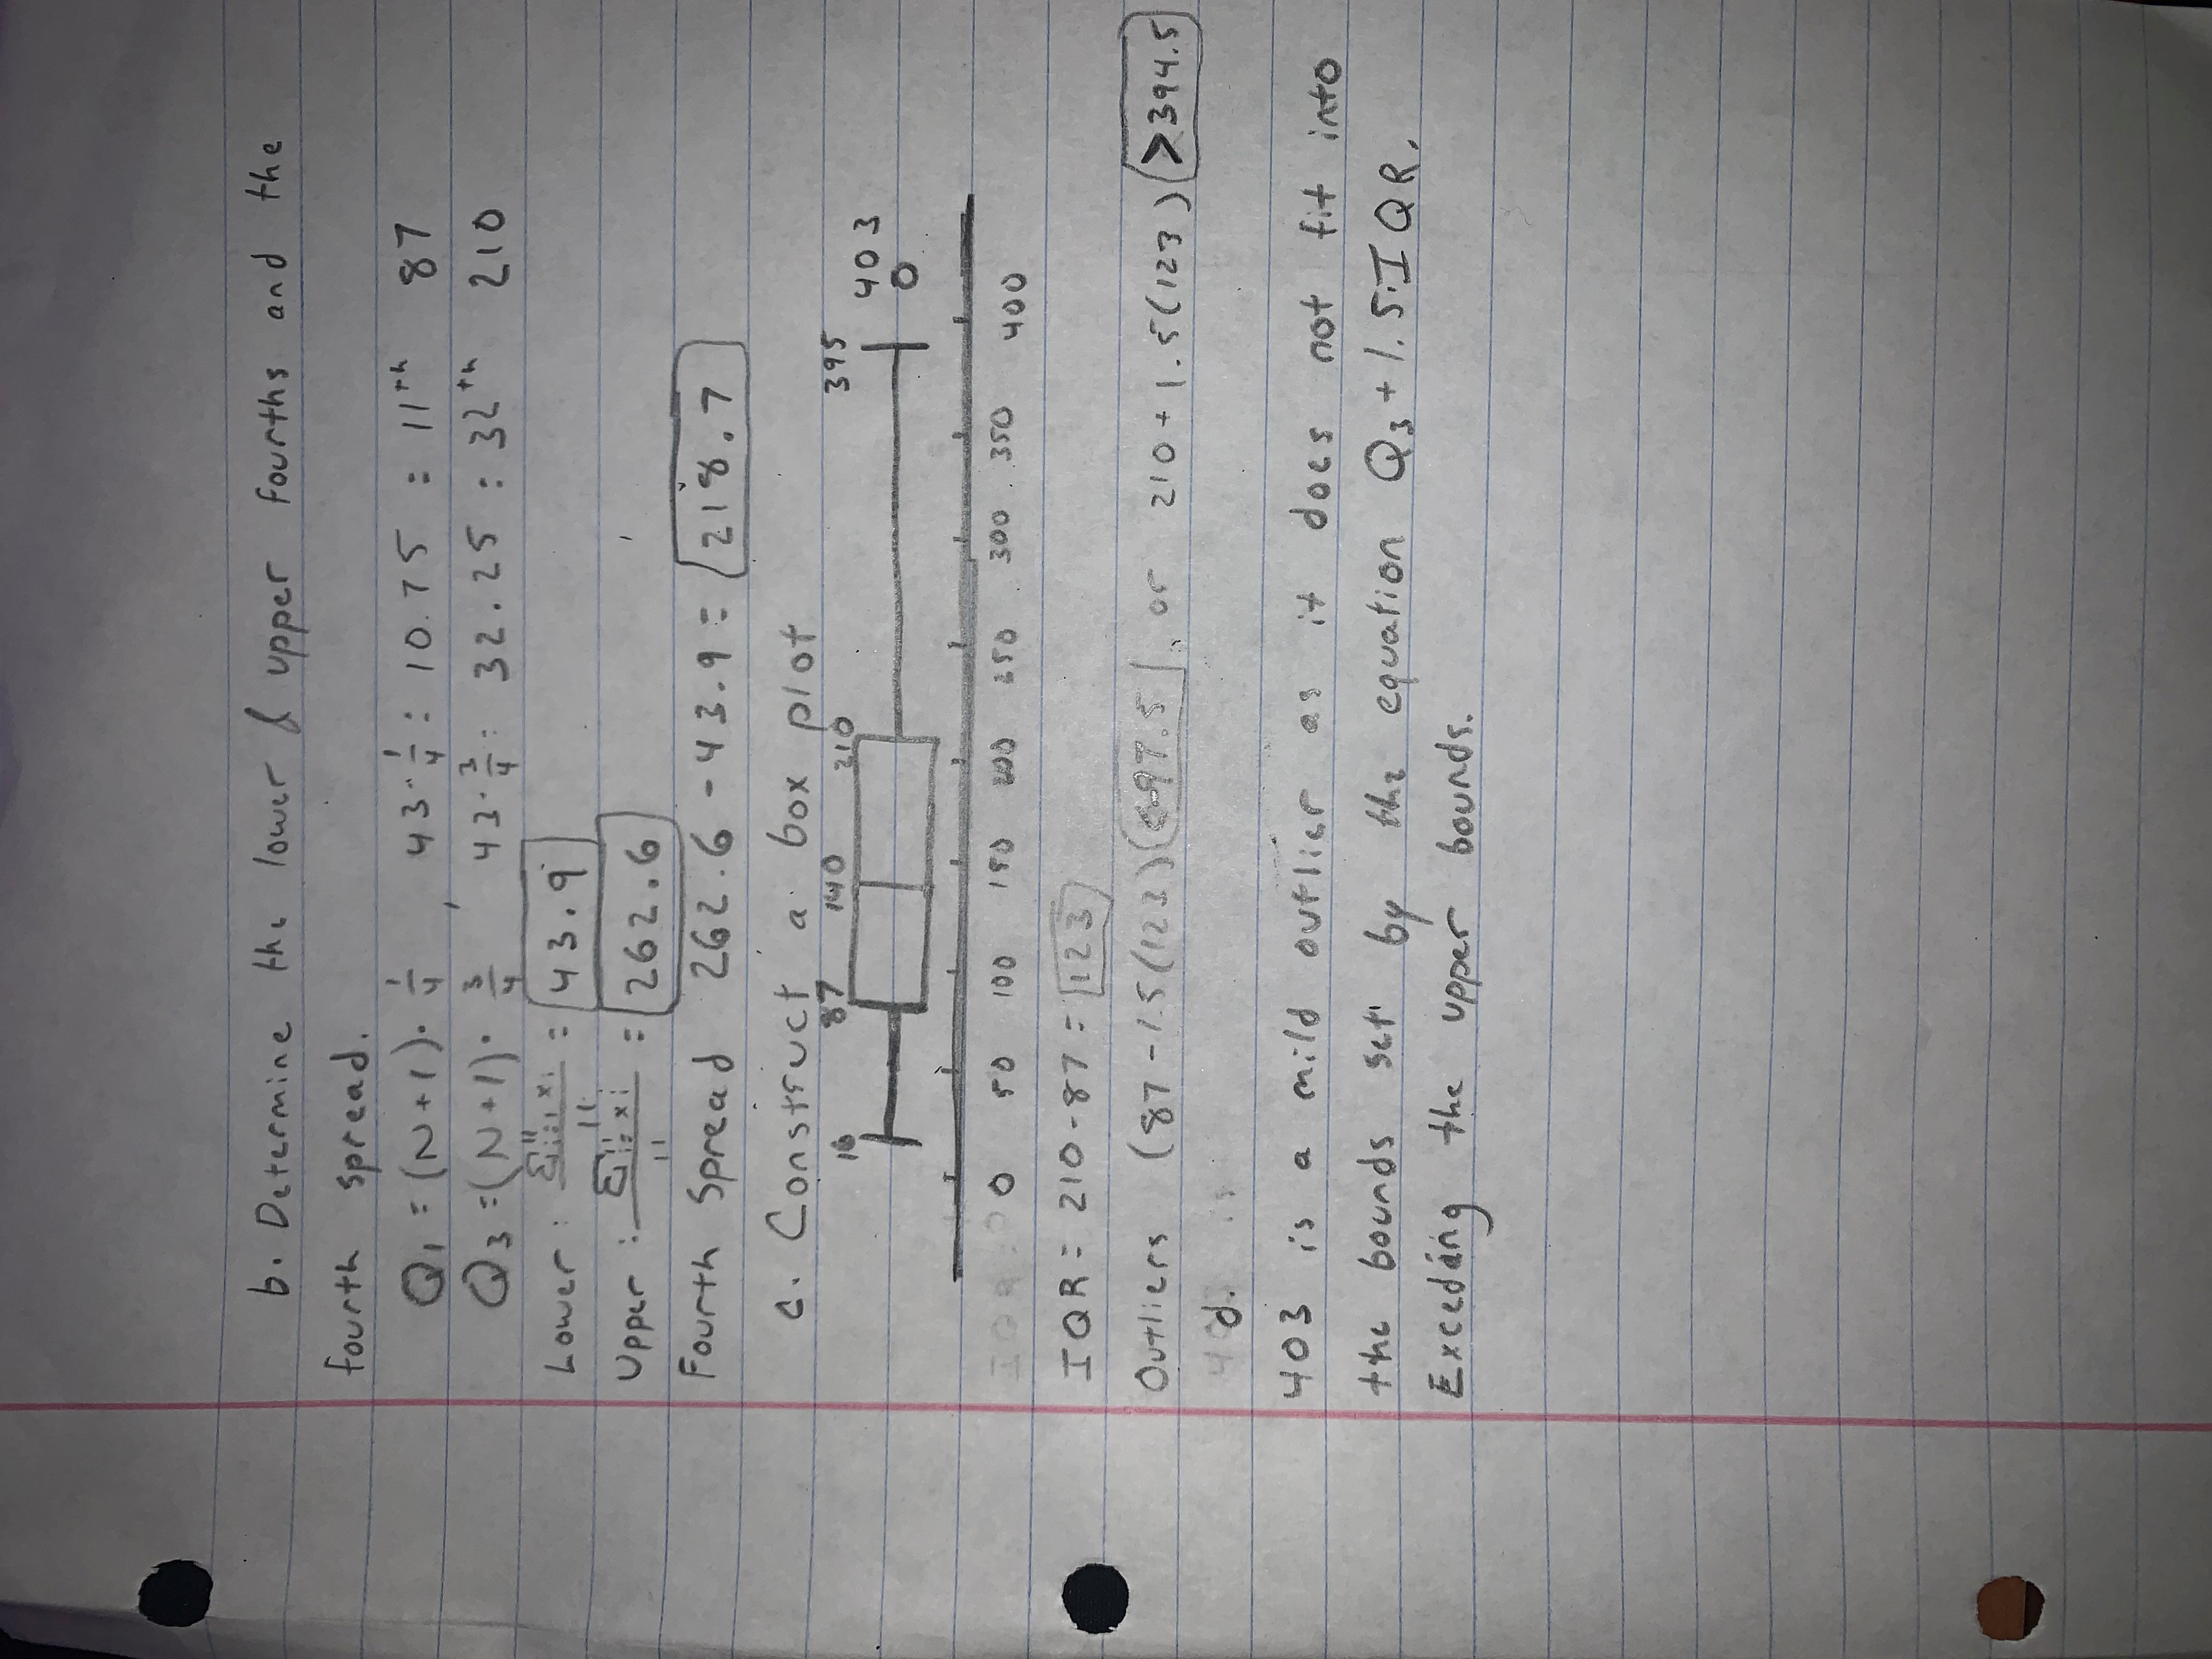 b. Determine the lower & upper fourths and the
fourth spread.
Q₁ = (N+1)· 1/4 , 43·1/4 = 10.75 = 11th 87
Q₃ = (N+1)· 3/4 43·3/4 = 32.25 = 32th 210
Lower : Σ¹¹ᵢ₌₁ xi / 11 = 43.9
Upper : Σ¹¹ᵢ₌ xi / 11 = 262.6
Fourth Spread 262.6 - 43.9 = 218.7
c. Construct a box plot
16 87 140 210 395 403
0 50 100 150 200 250 300 350 400
IQR = 210-87 = 123
Outliers (87-1.5(123) <-97.5 or 210+1.5(123) >394.5
d.
403 is a mild outlier as it does not fit into
the bounds set by the equation Q₃+1.5·IQR.
Exceding the upper bounds.